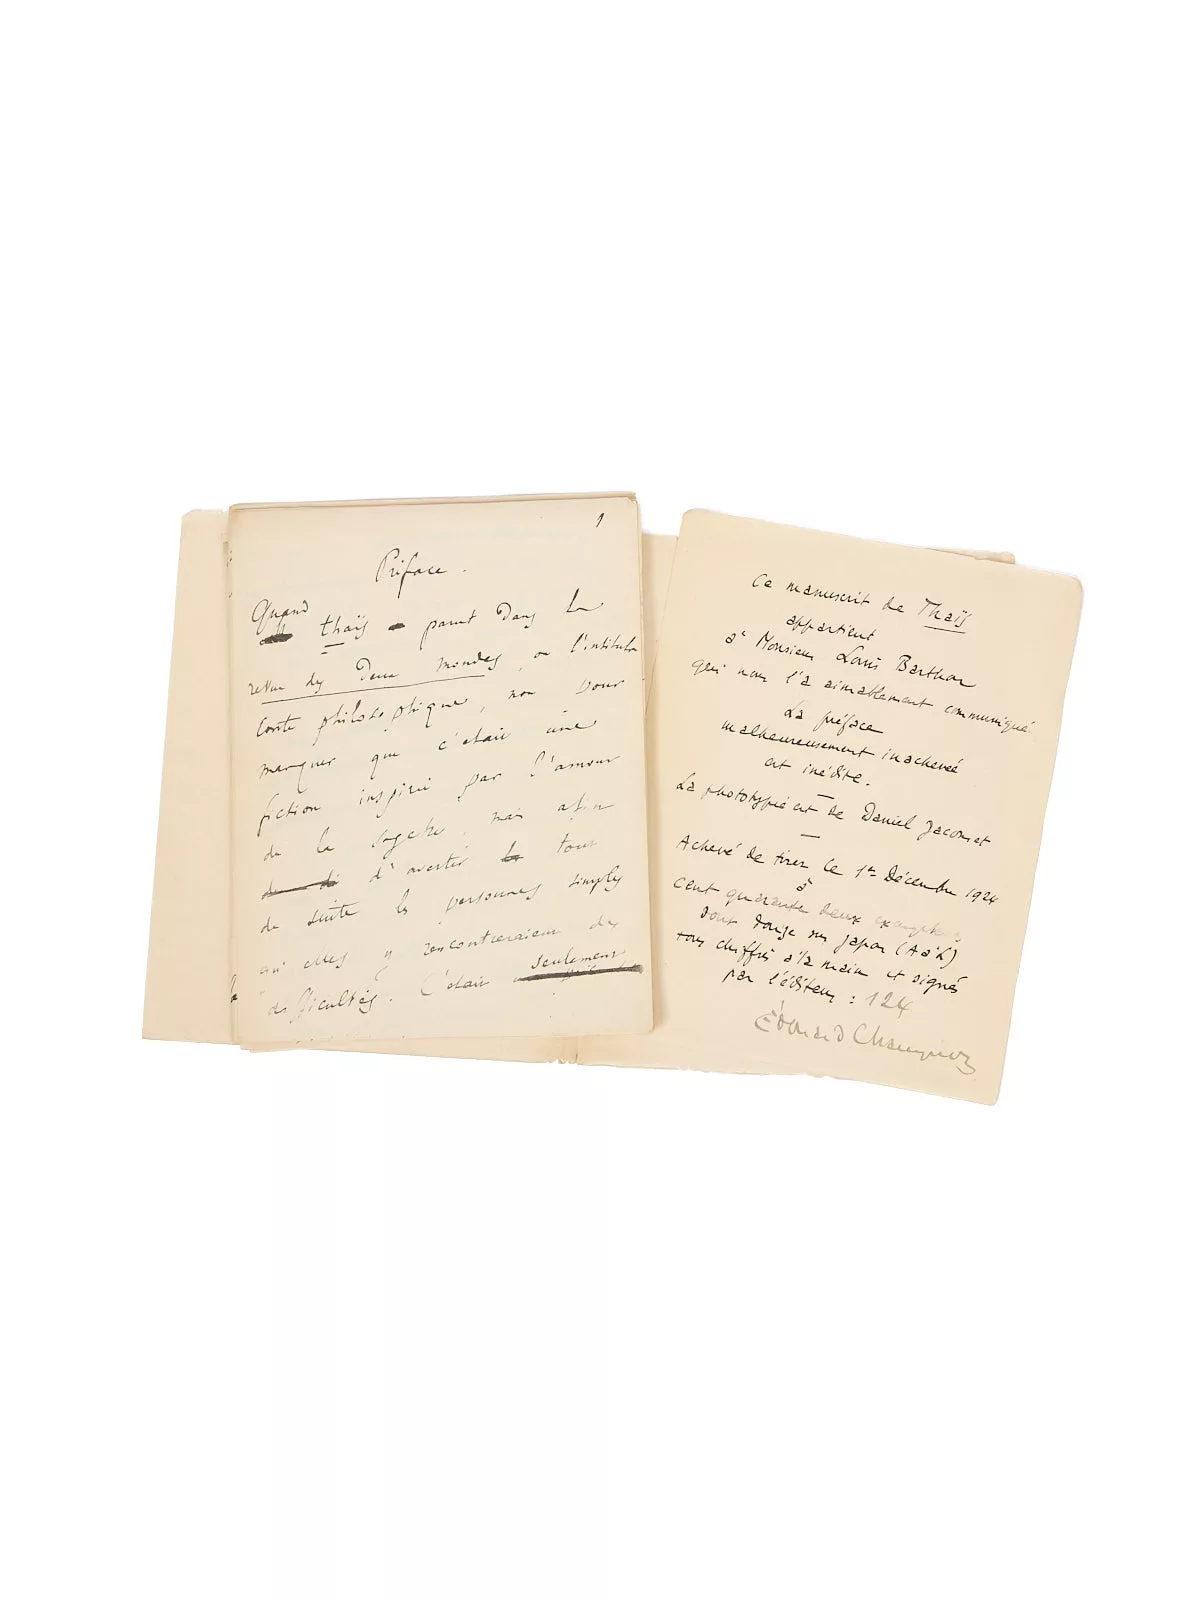 1
Préface.
Quand
Thaïs parut dans la
revue des Deux mondes, on l'intitula
conte philosophique, non pour
marquer que c'était une
fiction inspirée par l'amour
de la sagesse, mais afin
d'avertir tout
de suite les personnes simples
qu'elles y rencontreraient des
difficultés. C'était seulement
Ce manuscrit de Thaïs
appartient
à Monsieur Louis Barthou
qui nous l'a aimablement communiqué.
La préface
malheureusement inachevée
est inédite.
La phototypie est de Daniel Jacomet
Achevé de tirer le 1er Décembre 1924
à
cent quarante deux exemplaires
dont douze sur japon (A à L)
tous chiffrés à la main et signés
par l'éditeur : 124
Édouard Champion